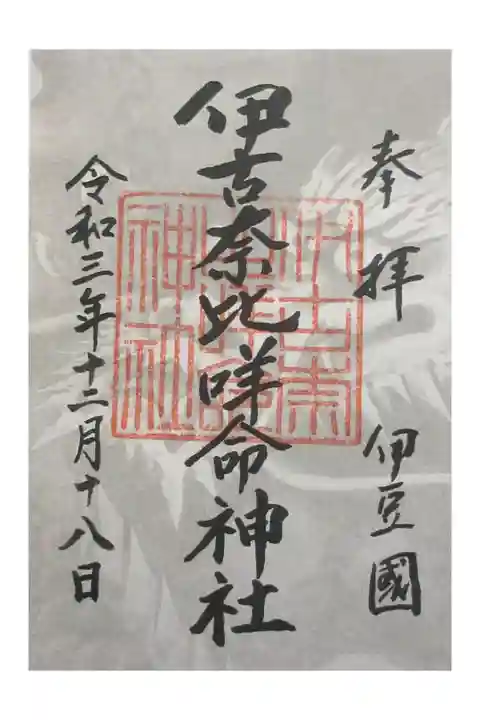 奉拝 伊豆國
伊古奈比咩命神社
令和三年十二月十八日
伊古奈比咩命神社